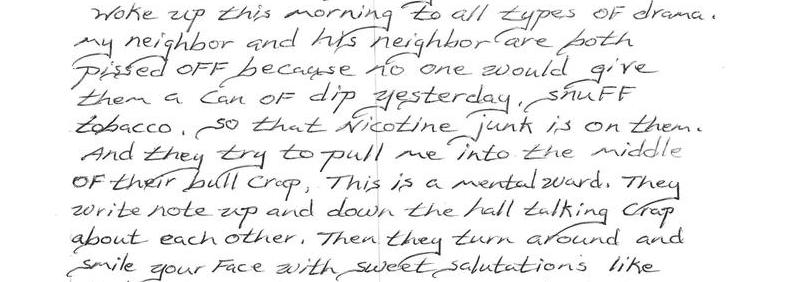 Woke up this morning to all types OF drama.
my neighbor and his neighbor are both
pissed OFF because no one would give
them a can OF dip yesterday, snuFF
tobacco, so that Nicotine junk is on them.
And they try to pull me into the middle
OF their bull crap, This is a mental ward. They
write note up and down the hall talking crap
about each other. Then they turn around and
smile your Face with sweet salutations like